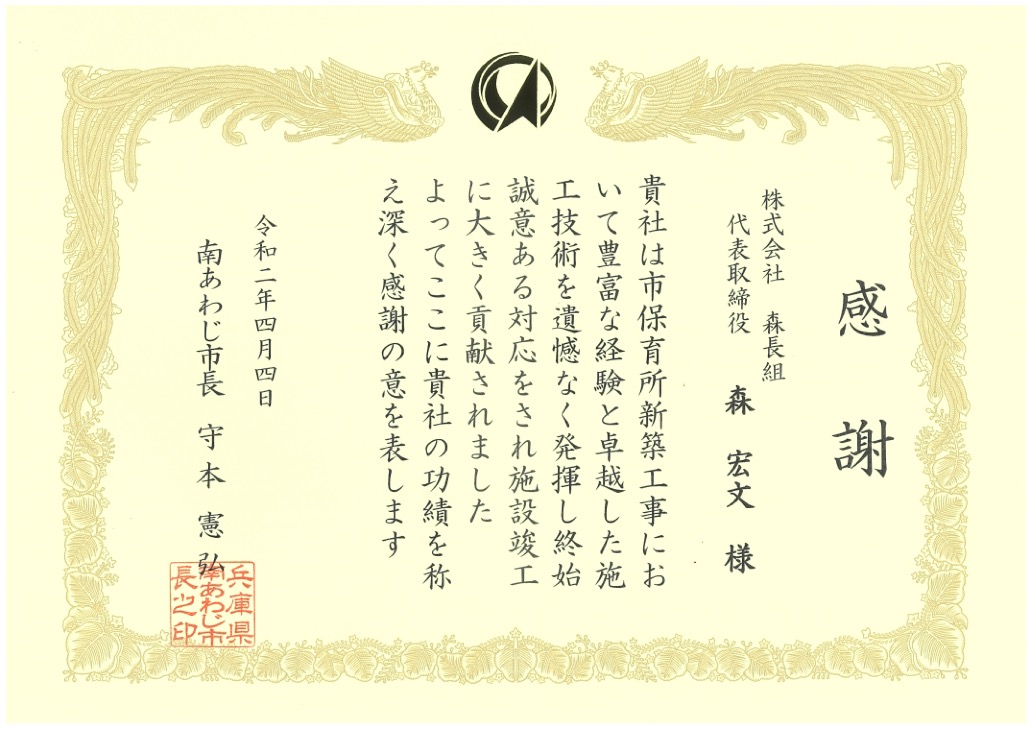 感謝
株式会社 森長組
代表取締役 森 宏文 様
貴社は市保育所新築工事にお
いて豊富な経験と卓越した施
工技術を遺憾なく発揮し終始
誠意ある対応をされ施設竣工
に大きく貢献されました
よってここに貴社の功績を称
え深く感謝の意を表します
令和二年四月四日
南あわじ市長 守本憲弘
兵庫県
南あわじ市
長之印